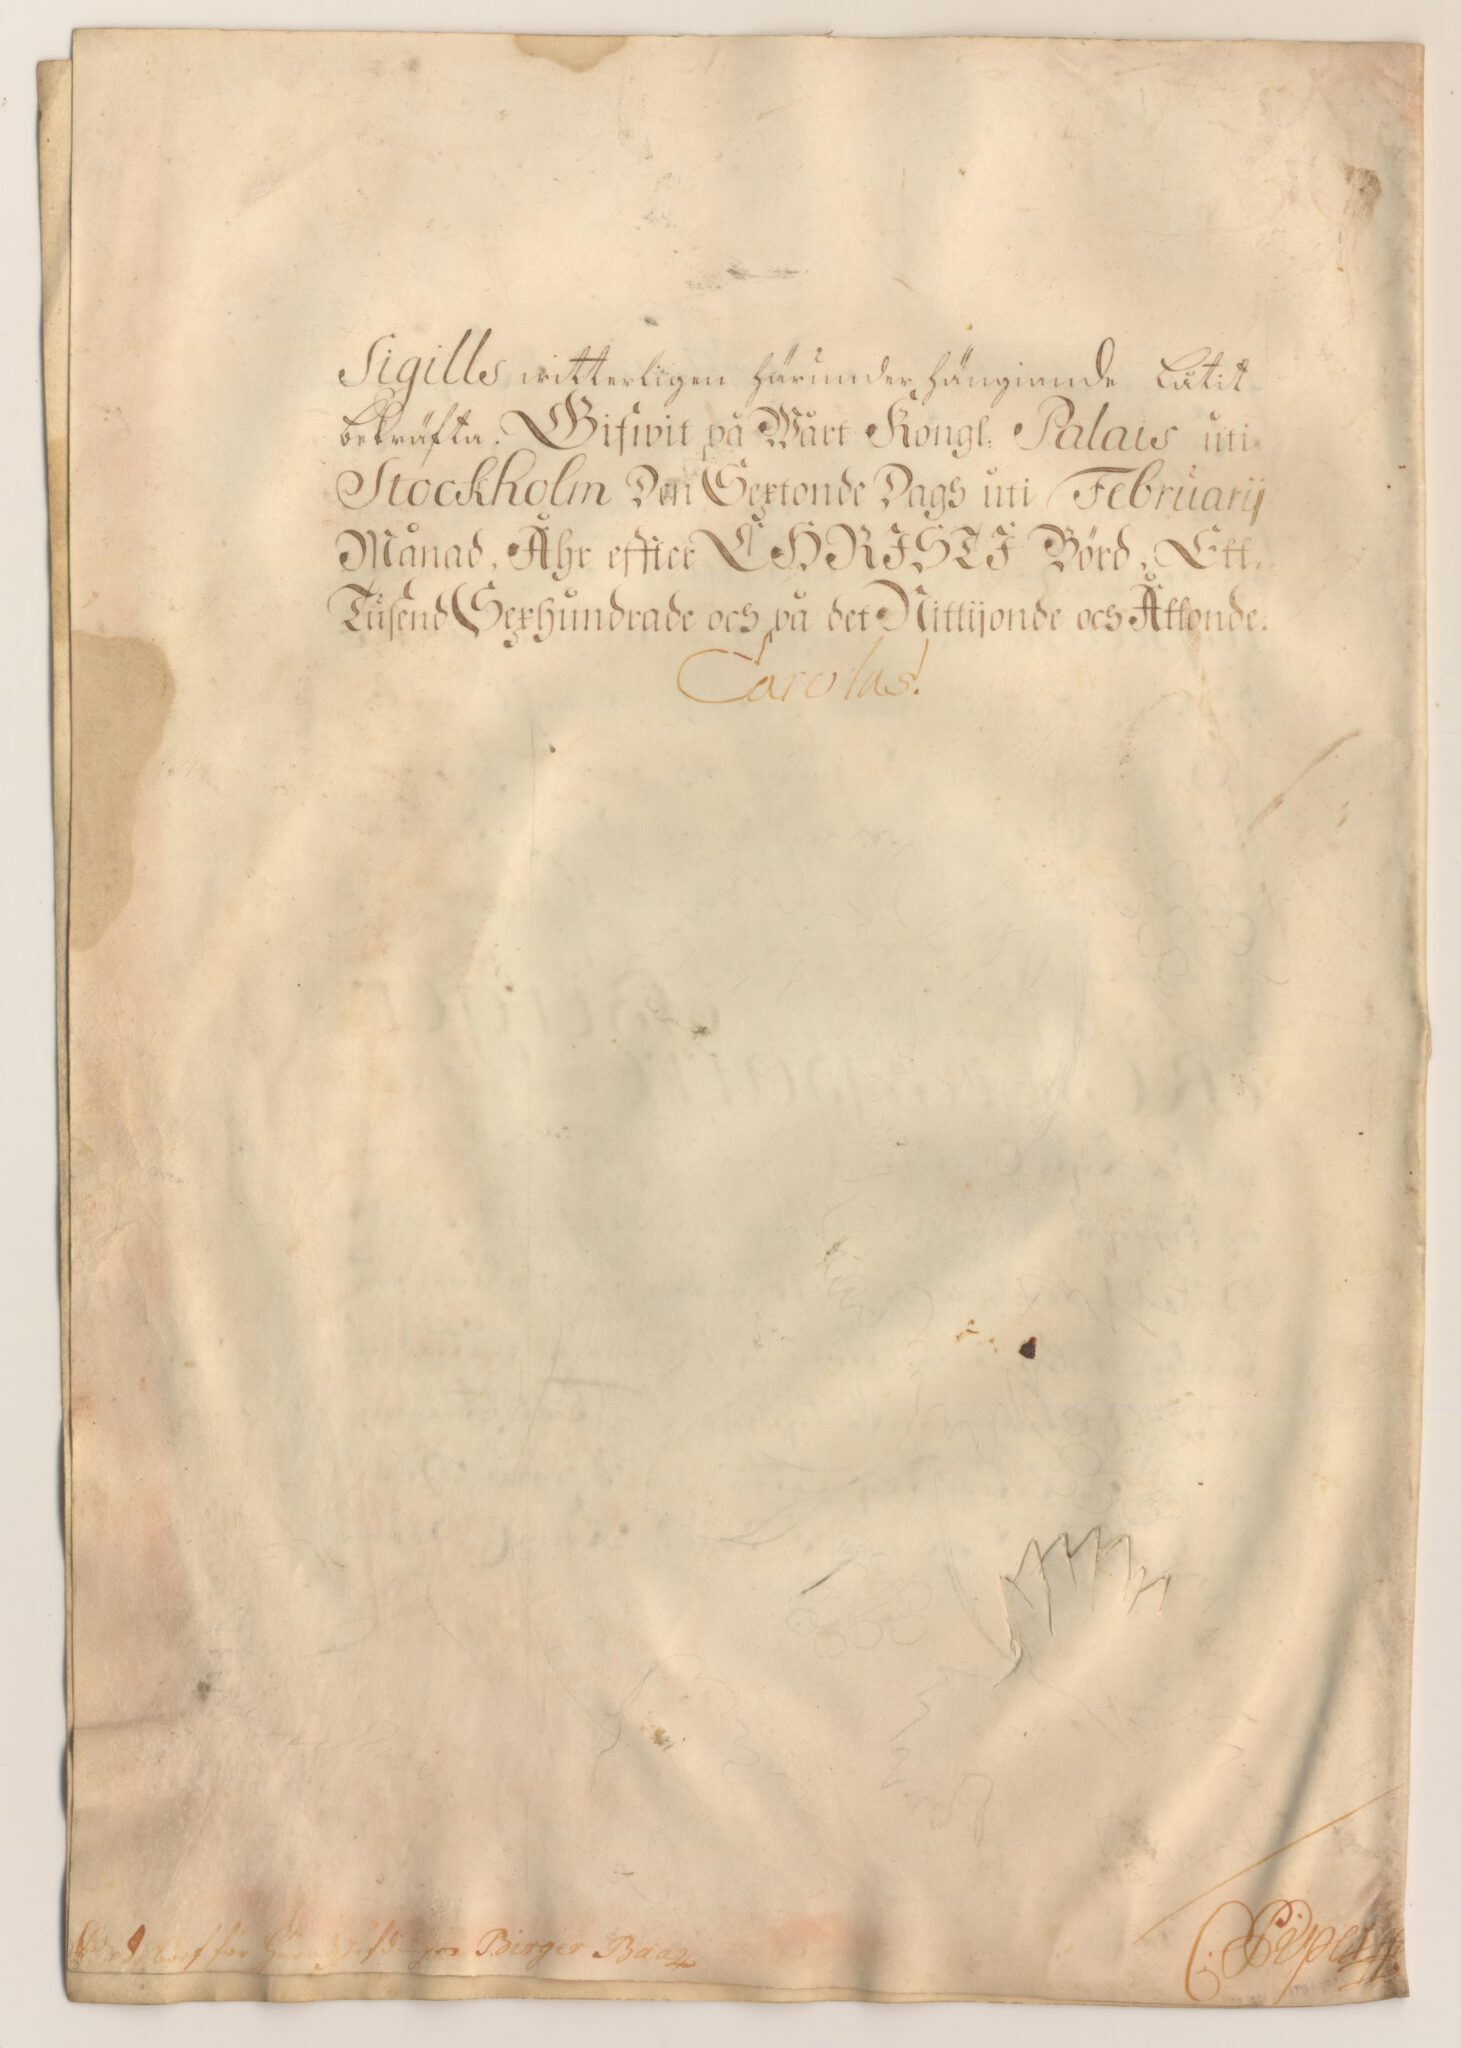 Sigills witterligen härunder hängiande låtit
bekräfta. Gifwit på Wårt Kongl: Palais uti
Stockholm Den Sextonde Dags uti Februarij
Månad, Åhr effter CHRISTI Börd, Ett
Tusend Sexhundrade och på det Nittijonde och Åttonde.
Carolus.
bref för Häradshöfdingen Birger Baaz
C. Piper